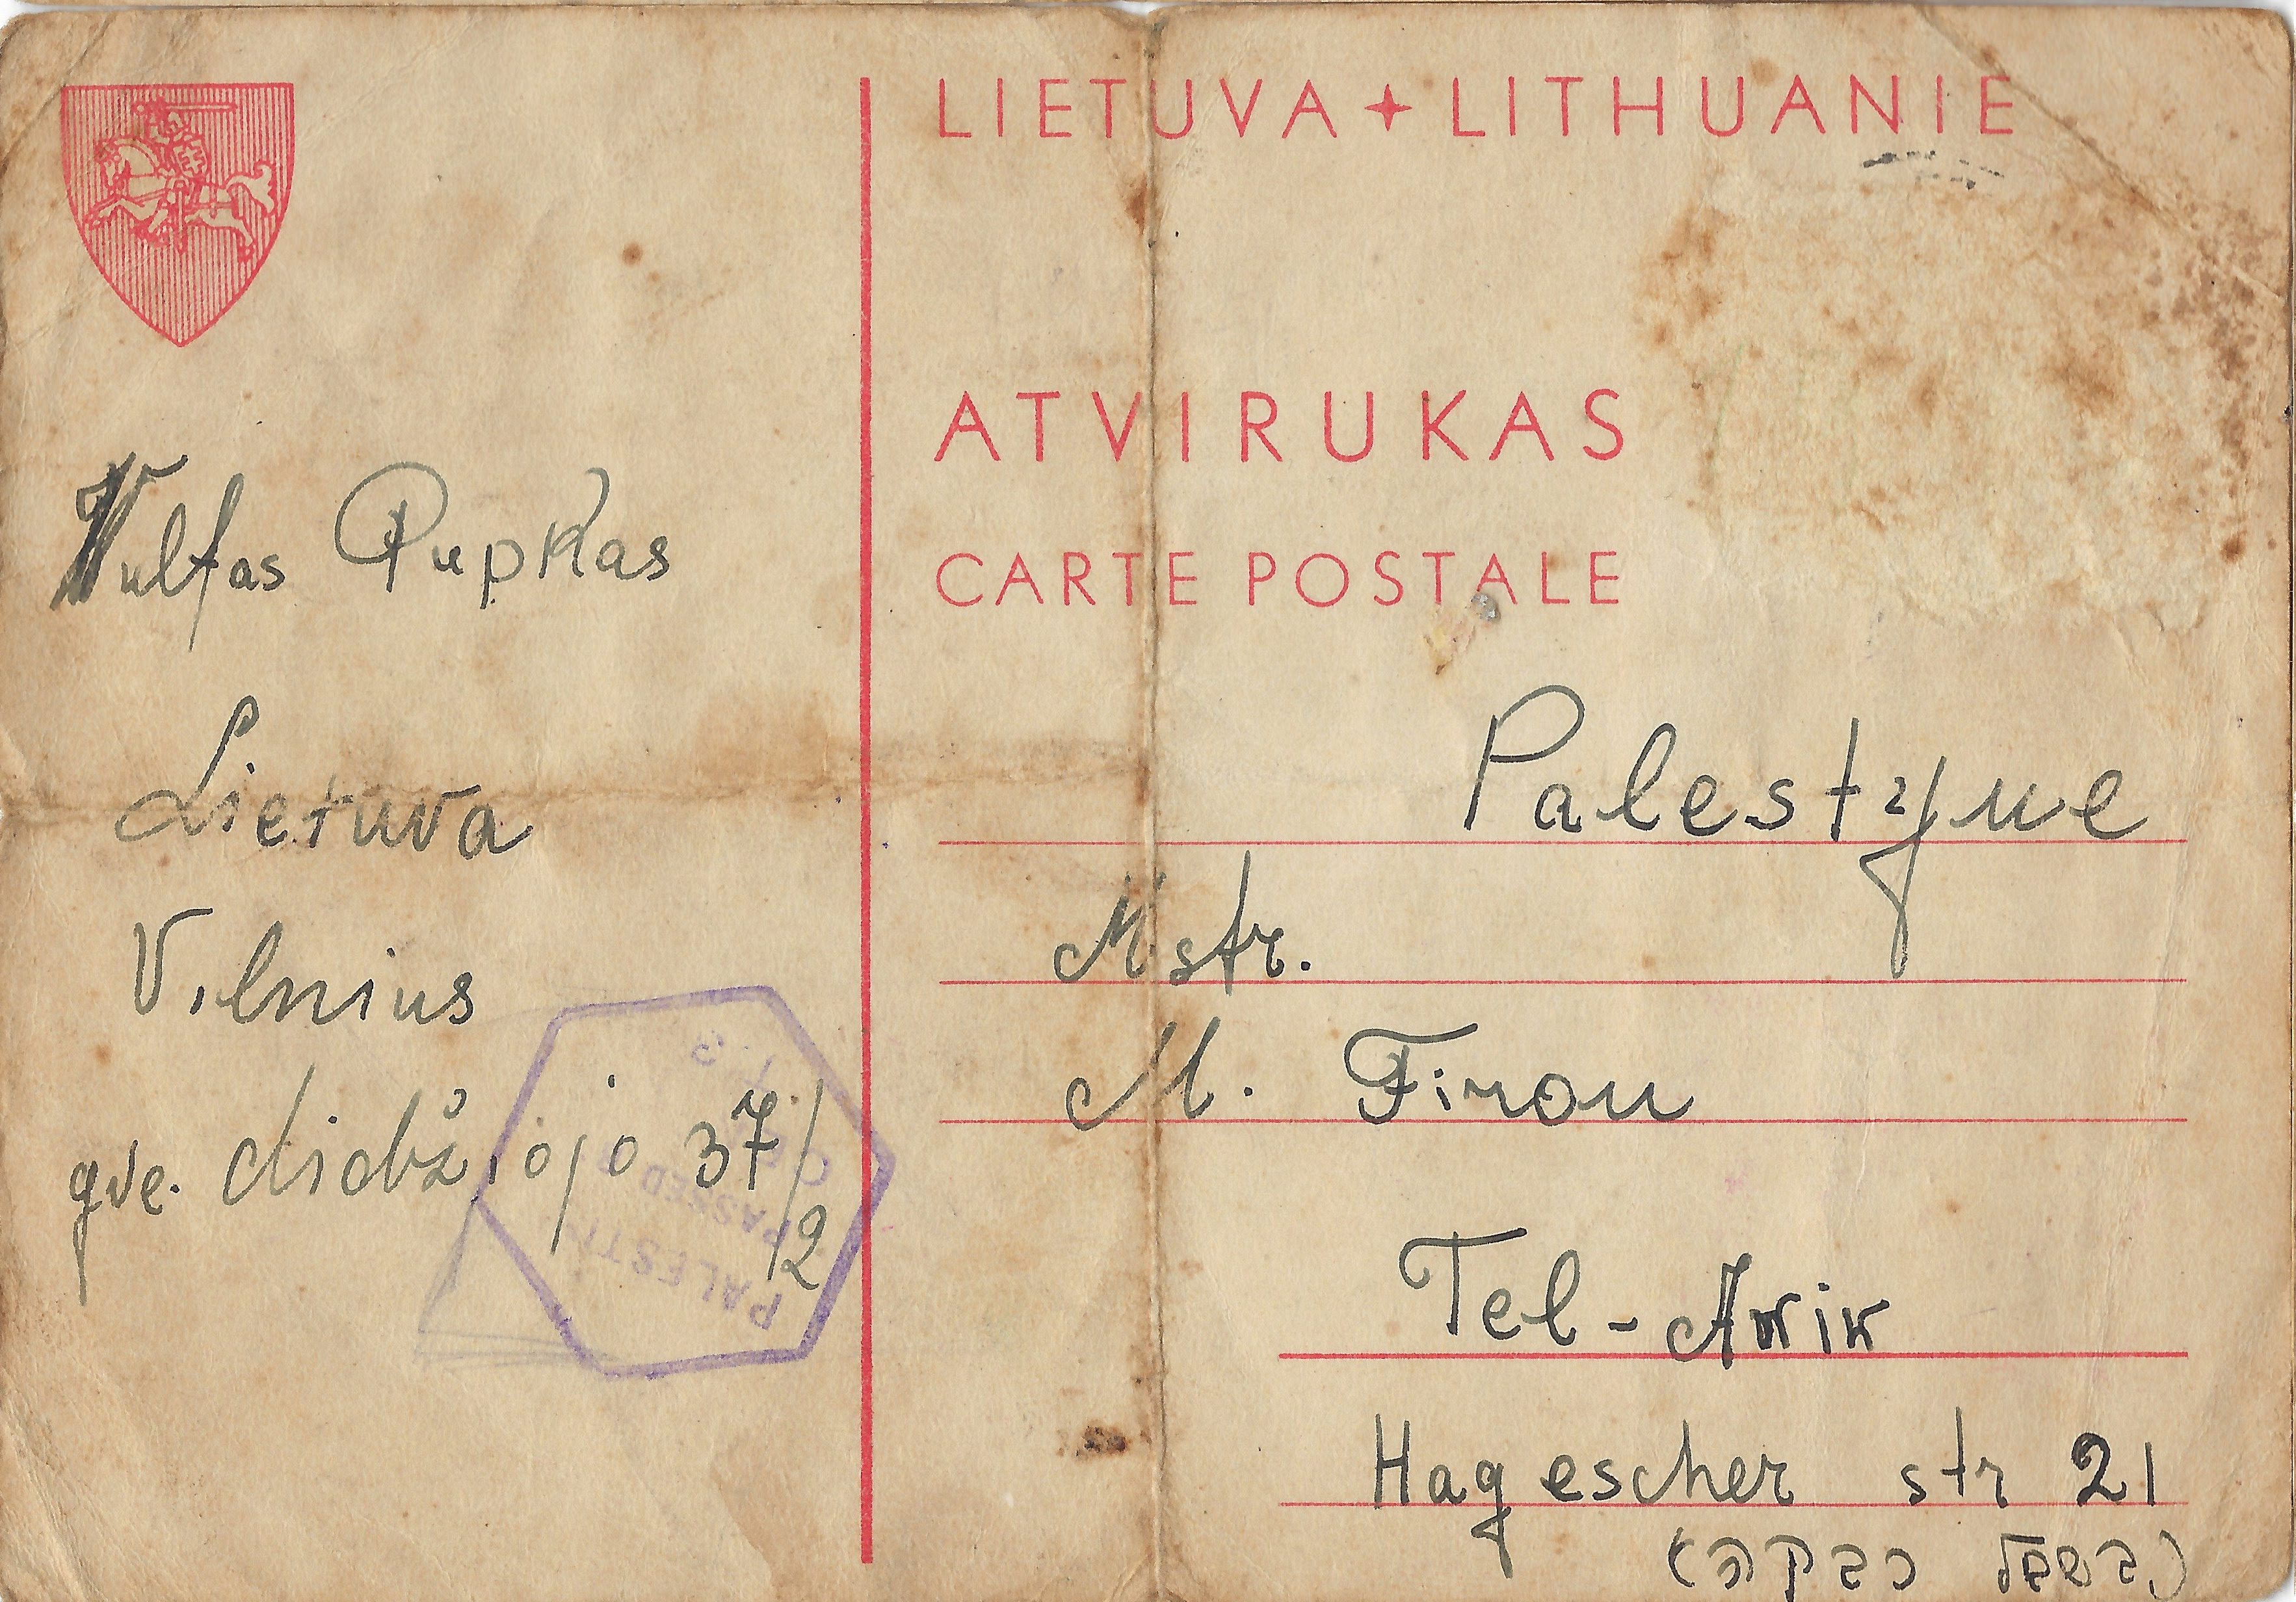 LIETUVA ✦ LITHUANIE
ATVIRUKAS
CARTE POSTALE
Vulfas Pupkas
Lietuva
Vilnius
gve. didžiojo 37/2
Palestyne
Mstr.
M. Firon
Tel-Awiw
Hagescher str 21
(בשביל רבקה)
PALESTIN
PASSED